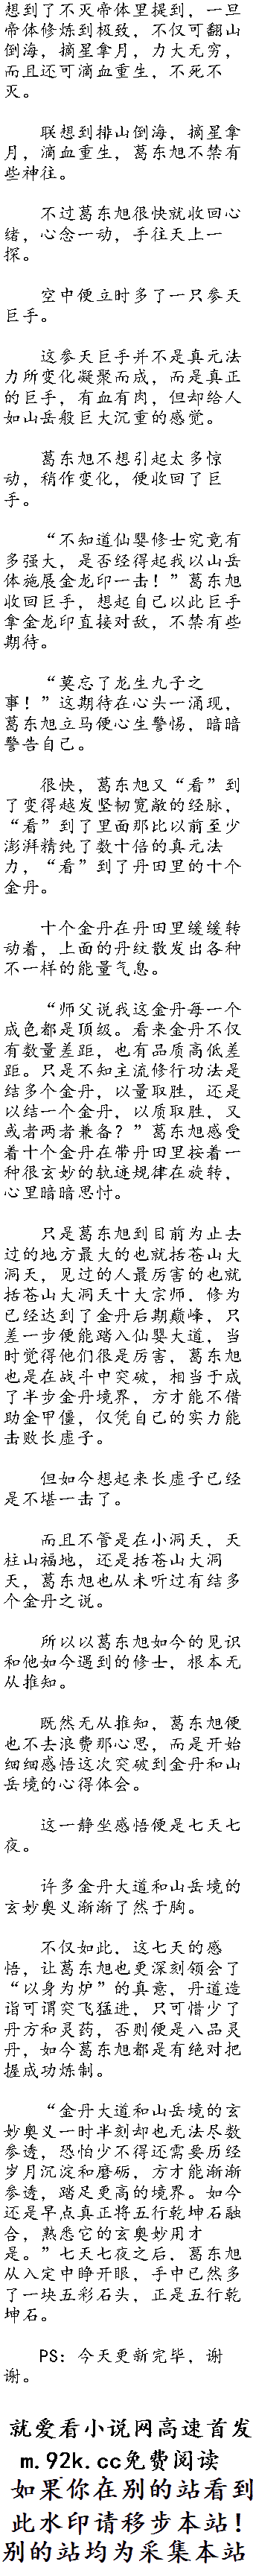 想到了不灭帝体里提到，一旦
帝体修炼到极致，不仅可翻山
倒海，摘星拿月，力大无穷，
而且还可滴血重生，不死不
灭。
联想到排山倒海，摘星拿
月，滴血重生，葛东旭不禁有
些神往。
不过葛东旭很快就收回心
绪，心念一动，手往天上一
探。
空中便立时多了一只参天
巨手。
这参天巨手并不是真元法
力所变化凝聚而成，而是真正
的巨手，有血有肉，但却给人
如山岳般巨大沉重的感觉。
葛东旭不想引起太多惊
动，稍作变化，便收回了巨
手。
“不知道仙婴修士究竟有
多强大，是否经得起我以山岳
体施展金龙印一击！”葛东旭
收回巨手，想起自己以此巨手
拿金龙印直接对敌，不禁有些
期待。
“莫忘了龙生九子之
事！”这期待在心头一涌现，
葛东旭立马便心生警惕，暗暗
警告自己。
很快，葛东旭又“看”到
了变得越发坚韧宽敞的经脉，
“看”到了里面那比以前至少
澎湃精纯了数十倍的真元法
力，“看”到了丹田里的十个
金丹。
十个金丹在丹田里缓缓转
动着，上面的丹纹散发出各种
不一样的能量气息。
“师父说我这金丹每一个
成色都是顶级。看来金丹不仅
有数量差距，也有品质高低差
距。只是不知主流修行功法是
结多个金丹，以量取胜，还是
以结一个金丹，以质取胜，又
或者两者兼备？”葛东旭感受
着十个金丹在带丹田里按着一
种很玄妙的轨迹规律在旋转，
心里暗暗思忖。
只是葛东旭到目前为止去
过的地方最大的也就括苍山大
洞天，见过的人最厉害的也就
括苍山大洞天十大宗师，修为
已经达到了金丹后期巅峰，只
差一步便能踏入仙婴大道，当
时觉得他们很是厉害，葛东旭
也是在战斗中突破，相当于成
了半步金丹境界，方才能不借
助金甲僵，仅凭自己的实力能
击败长虚子。
但如今想起来长虚子已经
是不堪一击了。
而且不管是在小洞天，天
柱山福地，还是括苍山大洞
天，葛东旭也从未听过有结多
个金丹之说。
所以以葛东旭如今的见识
和他如今遇到的修士，根本无
从推知。
既然无从推知，葛东旭便
也不去浪费那心思，而是开始
细细感悟这次突破到金丹和山
岳境的心得体会。
这一静坐感悟便是七天七
夜。
许多金丹大道和山岳境的
玄妙奥义渐渐了然于胸。
不仅如此，这七天的感
悟，让葛东旭也更深刻领会了
“以身为炉”的真意，丹道造
诣可谓突飞猛进，只可惜少了
丹方和灵药，否则便是八品灵
丹，如今葛东旭都是有绝对把
握成功炼制。
“金丹大道和山岳境的玄
妙奥义一时半刻却也无法尽数
参透，恐怕少不得还需要历经
岁月沉淀和磨砺，方才能渐渐
参透，踏足更高的境界。如今
还是早点真正将五行乾坤石融
合，熟悉它的玄奥妙用才
是。”七天七夜之后，葛东旭
从入定中睁开眼，手中已然多
了一块五彩石头，正是五行乾
坤石。
PS：今天更新完毕，谢
谢。
就爱看小说网高速首发
m.92k.cc免费阅读
如果你在别的站看到
此水印请移步本站！
别的站均为采集本站